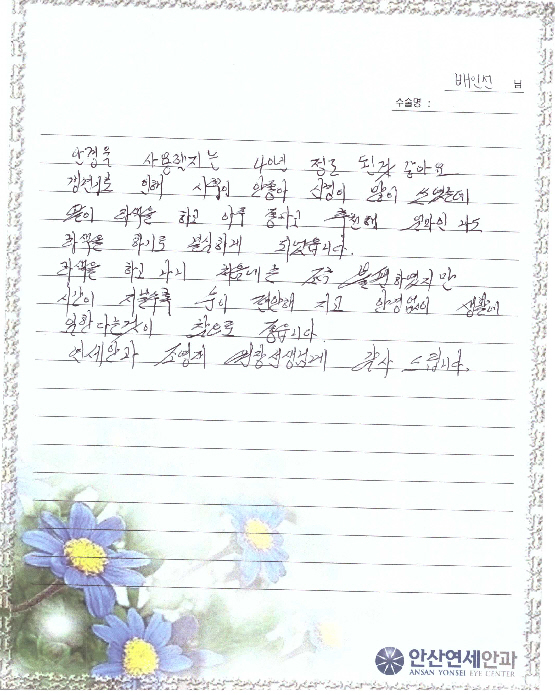 배인선 님
수술명 :
안경을 사용한지는 40년 정도 된것 같아요
인해 시력이 안좋아 신경이 많이 쓰였는데
라섹을 하고 아주 좋다고 추천해
라섹을 하기로 결심하게 되었습니다.
라섹을 하고 나니 처음에는 조금 불편하였지만
시간이 지날수록 눈이 편안해 지고 안경없이 생활에
것이 참으로 좋습니다.
연세안과 조영재 원장선생님께 감사 드립니다.
안산연세안과
ANSAN YONSEI EYE CENTER